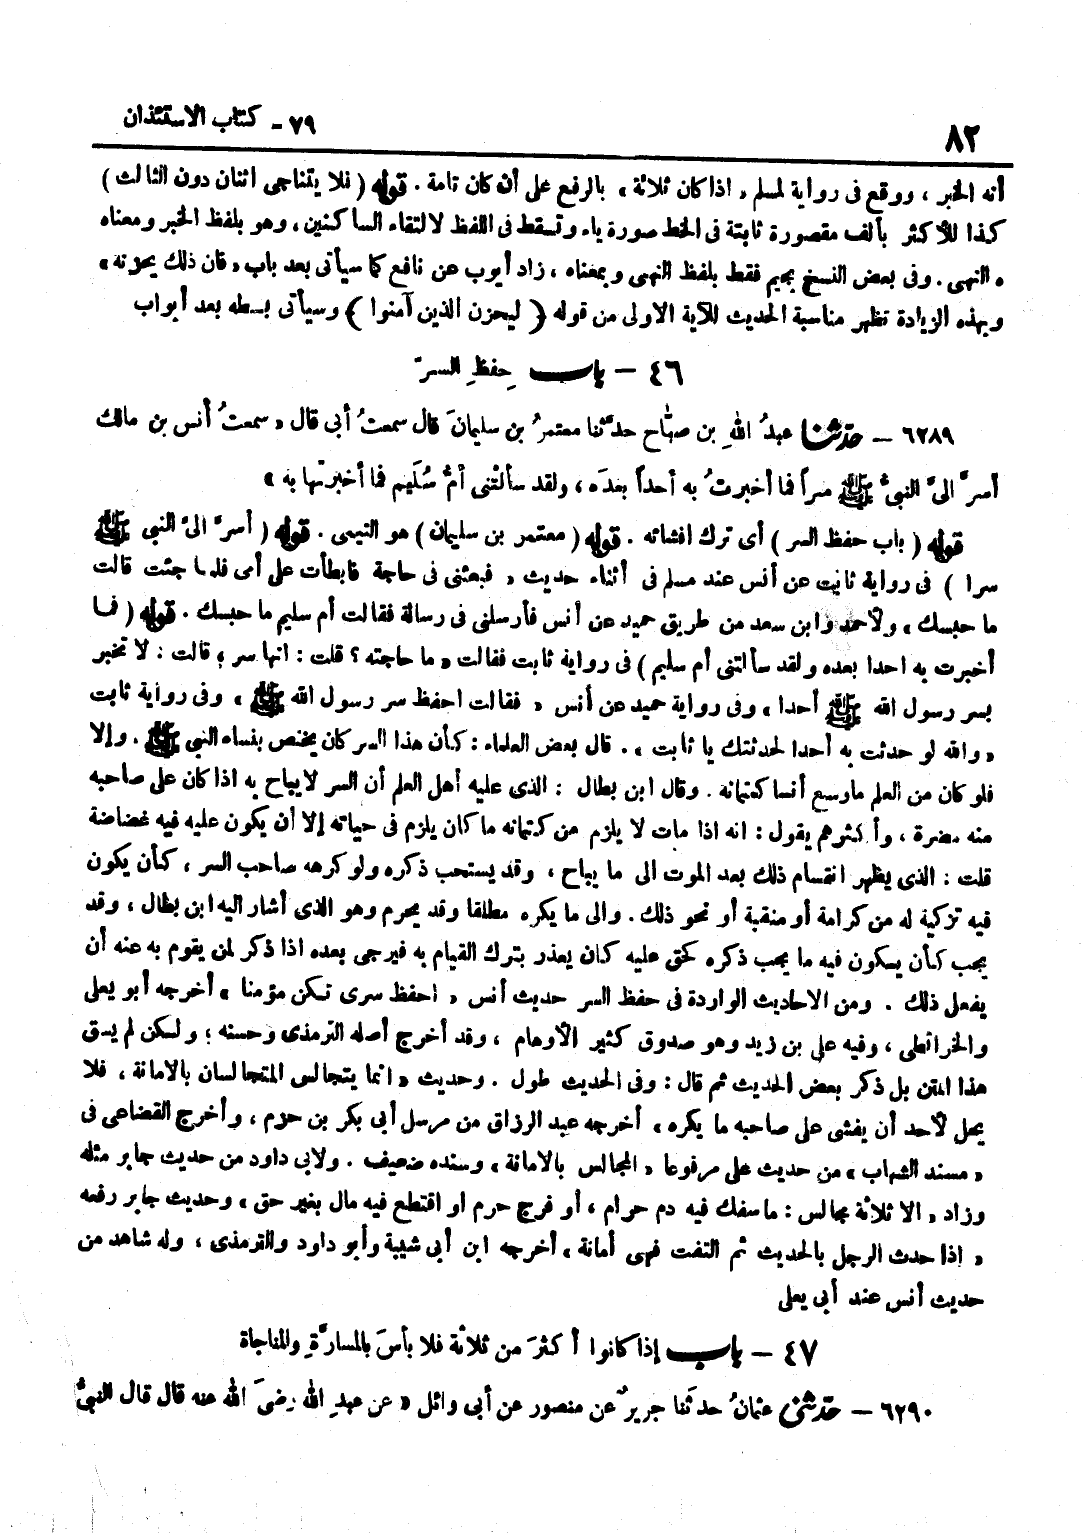 ٨٢
٧٩ - كتاب الاستئذان
أنه الخبر ، ووقع فى رواية لمسلم « اذا كان ثلاثة » بالرفع على أن كان تامة . قوله ( فلا يتناجى اثنان دون الثالث )
كذا للأكثر بألف مقصورة ثابتة فى الخط صورة ياء وتسقط فى اللفظ لالتقاء الساكنين ، وهو بلفظ الخبر ومعناه
النهى . وفى بعض النسخ بجيم فقط بلفظ النهى وبمعناه ، زاد أيوب عن نافع كما سيأتى بعد باب « فان ذلك يحزنه »
وبهذه الزيادة تظهر مناسبة الحديث للآية الاولى من قوله ﴿ ليحزن الذين آمنوا ﴾ وسيأتى بسطه بعد أبواب
٤٦ - باب حِفظِ السرّ
٦٢٨٩ - حدثنا عبدُ اللهِ بن صبّاح حدّثنا معتمرُ بن سليمانَ قال سمعتُ أبى قال « سمعتُ أنس بن مالك
أسرَّ الىَّ النبىُّ ﷺ سراً فما أخبرتُ به أحداً بعدَه ، ولقد سألتْنى أمُّ سُلَيم فما أخبرتها به »
قوله ( باب حفظ السر ) أى ترك افشائه . قوله ( معتمر بن سليمان ) هو التيمى . قوله ( أسرَّ الىَّ النبى ﷺ
سرا ) فى رواية ثابت عن أنس عند مسلم فى أثناء حديث « فبعثنى فى حاجة فابطأت على أمى فلما جئت قالت
ما حبسك » ولأحمد وابن سعد من طريق حميد عن أنس فأرسلنى فى رسالة فقالت أم سليم ما حبسك . قوله ( فما
أخبرت به احدا بعده ولقد سألتنى أم سليم ) فى رواية ثابت فقالت « ما حاجته ؟ قلت : انها سر ؛ قالت : لا تخبر
بسر رسول الله ﷺ أحدا » وفى رواية حميد عن أنس « فقالت احفظ سر رسول الله ﷺ » وفى رواية ثابت
« والله لو حدثت به أحدا لحدثتك يا ثابت » . قال بعض العلماء : كأن هذا السر كان يختص بنساء النبى ﷺ . وإلا
فلو كان من العلم ما وسع أنسا كتمانه . وقال ابن بطال : الذى عليه أهل العلم أن السر لا يباح به اذا كان على صاحبه
منه مضرة ، وأكثرهم يقول : انه اذا مات لا يلزم من كتمانه ما كان يلزم فى حياته إلا أن يكون عليه فيه غضاضة
قلت : الذى يظهر انقسام ذلك بعد الموت الى ما يباح ، وقد يستحب ذكره ولو كرهه صاحب السر ، كأن يكون
فيه تزكية له من كرامة أو منقبة أو نحو ذلك . والى ما يكره مطلقا وقد يحرم وهو الذى أشار اليه ابن بطال ، وقد
يجب كأن يكون فيه ما يجب ذكره كحق عليه كان يعذر بترك القيام به فيرجى بعده اذا ذكر لمن يقوم به عنه أن
يفعل ذلك . ومن الاحاديث الواردة فى حفظ السر حديث أنس « احفظ سرى تكن مؤمنا » أخرجه أبو يعلى
والخرائطى ، وفيه على بن زيد وهو صدوق كثير الأوهام ، وقد أخرج أصله الترمذى وحسنه ؛ ولكن لم يسق
هذا المتن بل ذكر بعض الحديث ثم قال : وفى الحديث طول . وحديث « انما يتجالس المتجالسان بالامانة ، فلا
يحل لأحد أن يفشى على صاحبه ما يكره » أخرجه عبد الرزاق من مرسل أبى بكر بن حزم ، وأخرج القضاعى فى
« مسند الشهاب » من حديث على مرفوعا « المجالس بالامانة » وسنده ضعيف . ولابى داود من حديث جابر مثله
وزاد « الا ثلاثة مجالس : ما سفك فيه دم حرام ، أو فرج حرم او اقتطع فيه مال بغير حق » وحديث جابر رفعه
« اذا حدث الرجل بالحديث ثم التفت فهى أمانة » أخرجه ابن أبى شيبة وأبو داود والترمذى ، وله شاهد من
حديث أنس عند أبى يعلى
٤٧ - باب إذا كانوا أكثرَ من ثلاثة فلا بأسَ بالمسارَّةِ والمناجاة
٦٢٩٠ - حدثنى عثمانُ حدثنا جريرٌ عن منصور عن أبى وائل « عن عبدِ الله رضىَ الله عنه قال قال النبىُّ